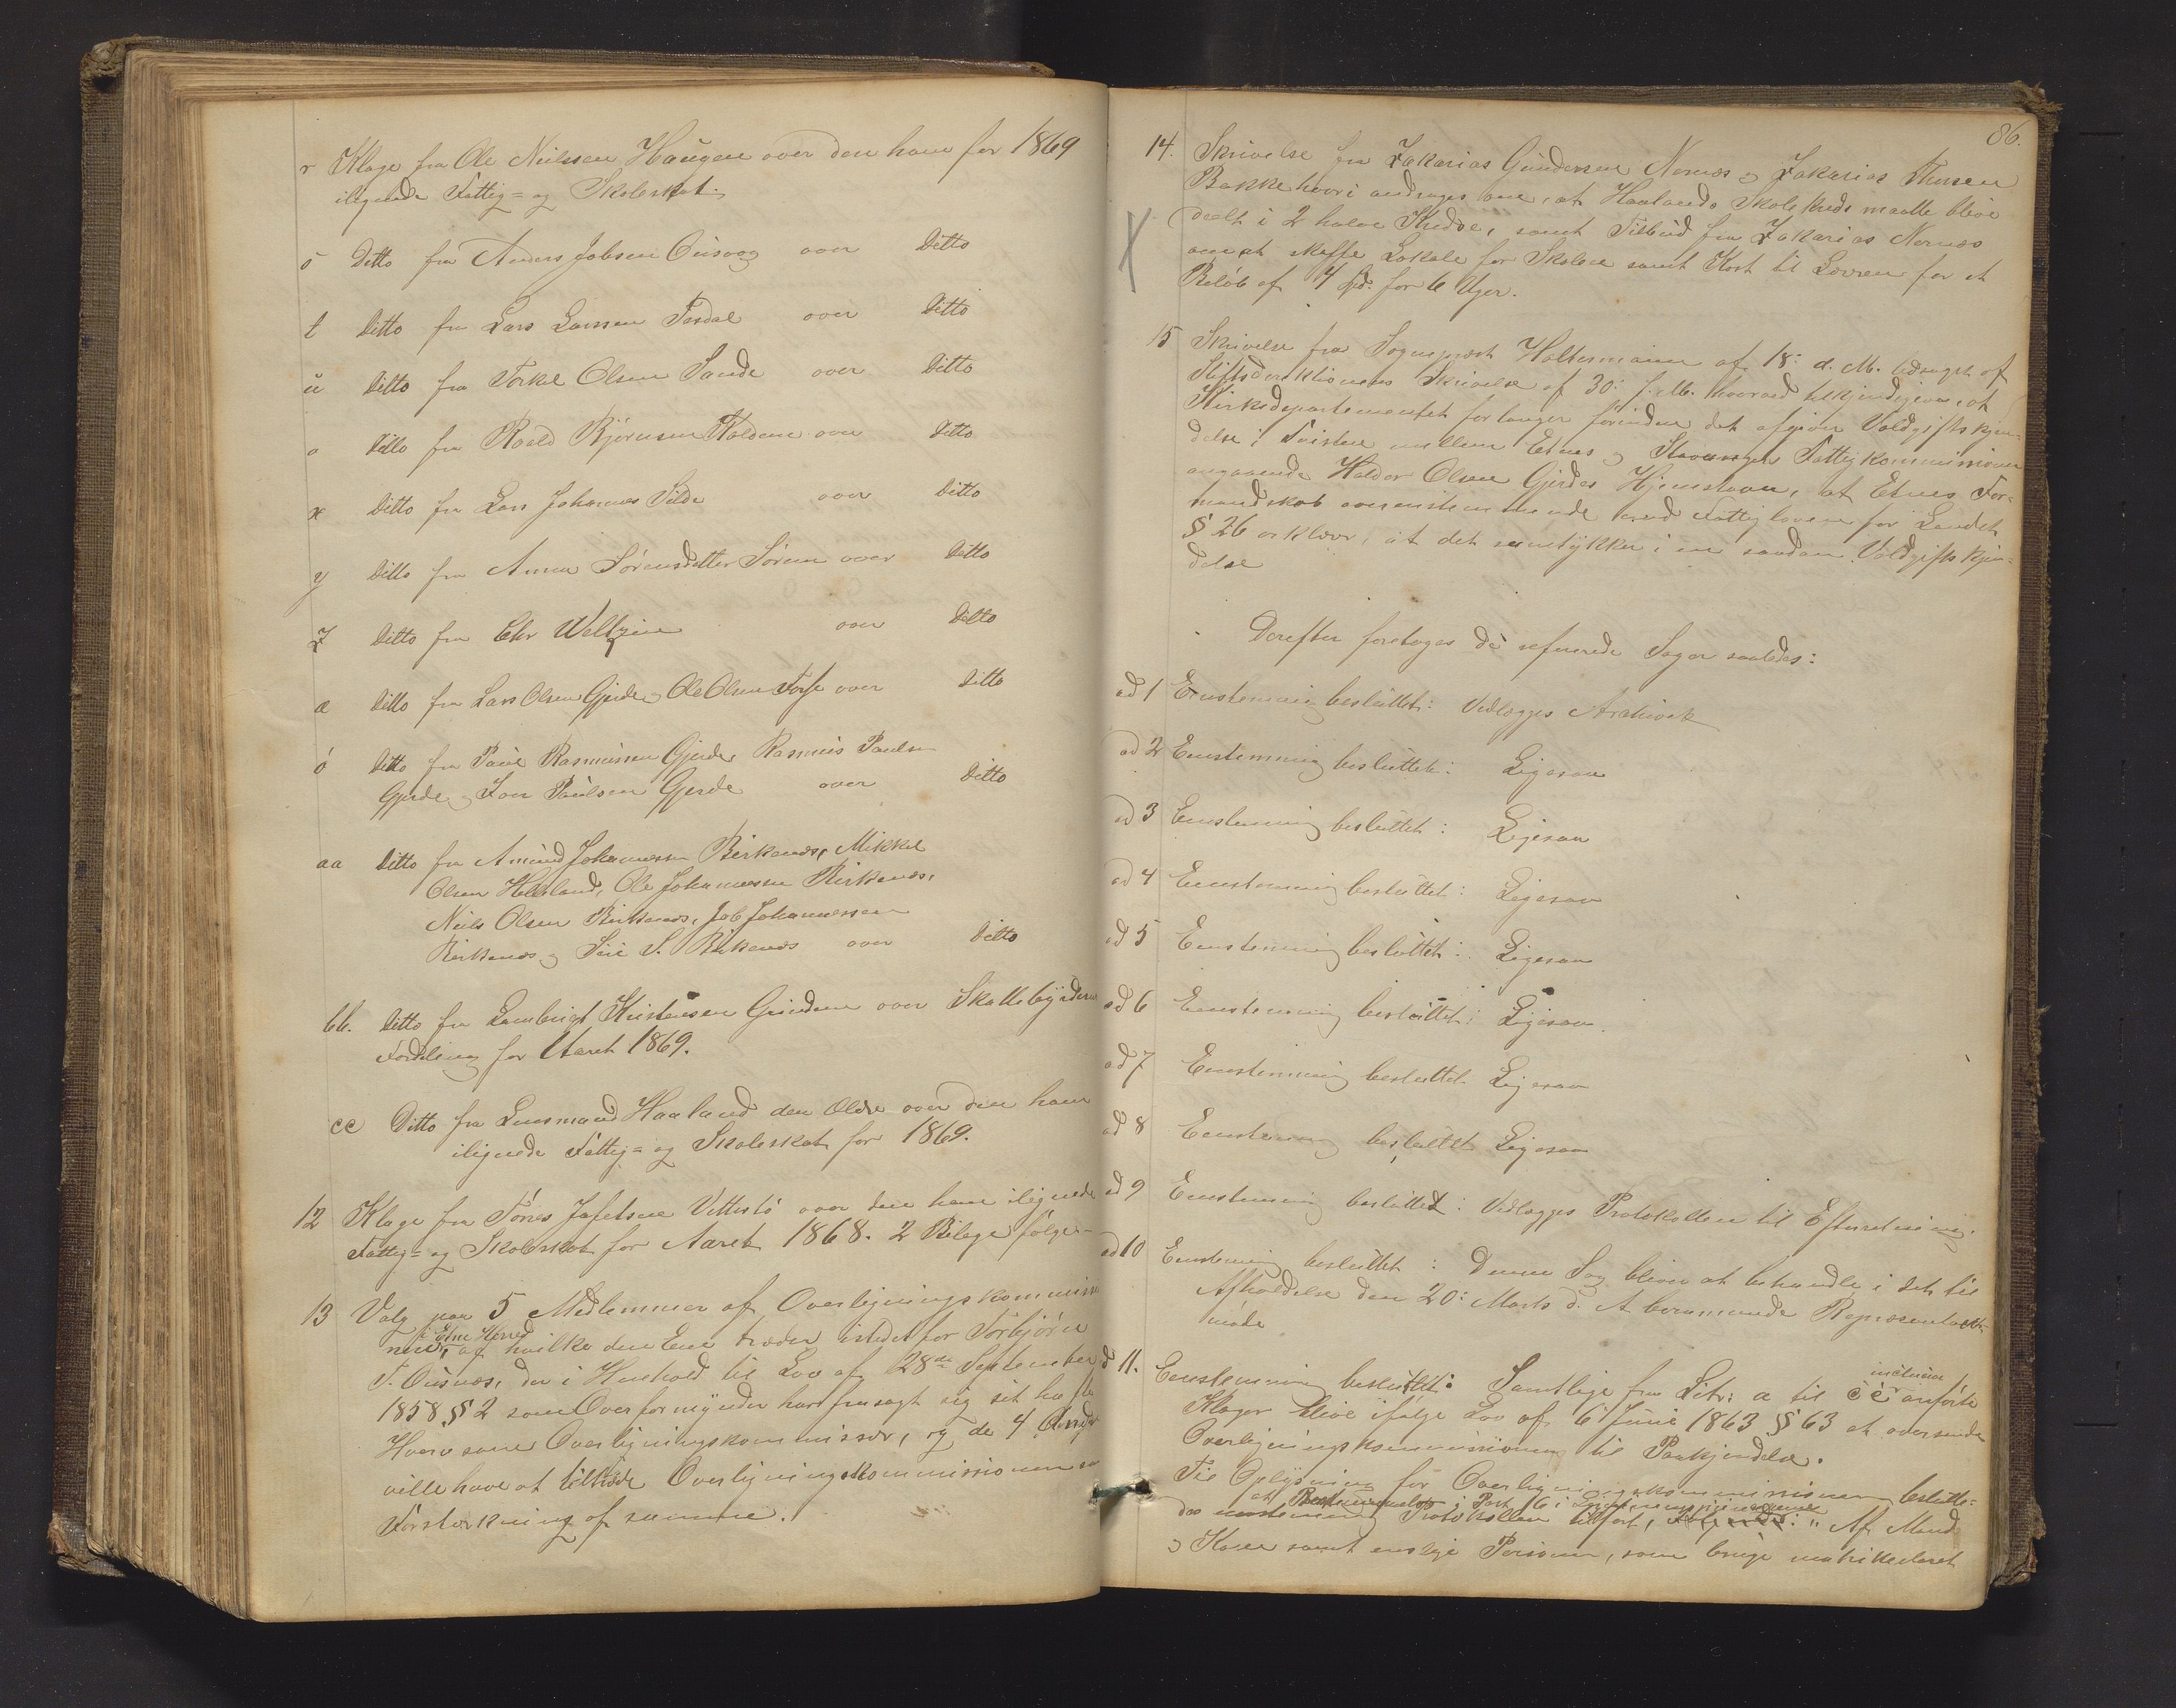 r Klage fra Ole Neilssen Haugen over den ham for 1869
ilignede Fattig= og Skoleskat.
s Ditto fra Anders Jobsen Ousvog over Ditto
t Ditto fra Lars Larssen Tesdal over Ditto
u Ditto fra Torkel Olsen Sande over Ditto
v Ditto fra Roald Bjørnsen over Ditto
x Ditto fra Lars Johannes Silde over Ditto
y Ditto fra Anna Sørensdatter Sørum over Ditto
z Ditto fra Chr Weltzin over Ditto
æ Ditto fra Lars Olsen Gjerde og Ole Olsen over Ditto
ø Ditto fra Paul Rasmussen Gjerde, Rasmus Paulsen
Gjerde og Iver Paulsen Gjerde over Ditto
aa Ditto fra Amund Johannessen Birkenæs, Mikkel
Olsen Helland, Ole Johannessen Birkenæs,
Neils Olsen Birkenæs, Job Johannessen
Birkenæs og Siri S. Birkenæs over Ditto
bb. Ditto fra Lambrigt Kristensen Grindem over Skattebyrdens
Fordeling for Aaret 1869.
cc Ditto fra Lensmand Haaland den Ældre over den ham
ilignede Fattig= og Skoleskat for 1869.
12 Klage fra Tønes Jafetsen Vettestø over den ham ilignede
Fattig= og Skoleskat for Aaret 1868. 2 Bilage følger
13 Valg paa 5 Medlemmer af Overligningskommissio
i Etne Herred
nen, af hvilke den Ene træder istedet for Torbjørn
T. Ousnæs, der i Henhold til Lov af 28de September
1858 § 2 som Overformynder har frasagt sig sit
Hverv som Overligningskommissær, og de 4 Andre
ville have at tiltræde Overligningskommissionen
Forstærkning af samme.
86.
14. Skrivelse fra Zakarias Gundersen Nernæs og Zakarias Thorsen
Bakke hvori andrages om, at Haalands Skolekreds maatte blive
deelt i 2 halve Kredse, samt Tilbud fra Zakarias Nernæs
om at skaffe Lokale for Skolen samt Kost til Læreren for et
Beløb af 4 Spd. for 6 Uger.
15 Skrivelse fra Sognepræst Haltermann af 18: d. M. ledsaget af
Stiftsdirektionens Skrivelse af 30: f. M. hvorved tilkjendegives, at
Kirkedepartementet forlanger førinden det afgiver Voldgiftskjen-
delse i Tvisten mellem Etnes og Stavangers Fattigkommission
angaaende Haldor Olsen Gjerdes Hjemstavn, at Etnes For-
mandskab overensstemmende med Fattigloven for Landet
§ 26 erklærer, at det samtykker i en saadan Voldgiftskjen-
delse
Derefter foretages de refererede Sager saaledes:
ad 1 Eenstemmig besluttet: Vedlægges Arkivet
ad 2 Eenstemmig besluttet: Ligesaa
ad 3 Eenstemmig besluttet: Ligesaa
ad 4 Eenstemmig besluttet: Ligesaa
ad 5 Eenstemmig besluttet: Ligesaa
ad 6 Eenstemmig besluttet: Ligesaa.
ad 7 Eenstemmig besluttet Ligesaa
ad 8 Eenstemmig besluttet Ligesaa
ad 9 Eenstemmig besluttet: Vedlægges Protokollen til Efterretning.
ad 10 Eenstemmig besluttet: Denne Sag bliver at behandle i det til
Afholdelse den 20: Marts d. A. berammede Repræsentant-
møde
ad 11. Eenstemmig besluttet: Samtlige fra Litr: a til cc inclusive anførte
Klager blive ifølge Lov af 6 Juni 1863 § 63 at oversende
Overligningskommissionen til Paakjendelse.
Til Oplysning for Overligningskommissionen beslutte-
des at Post 6 i
eenstemmig Protokollen tilført, Følgende: "Af Mand
og Kone samt enslige Personer, som bruge matrikuleret